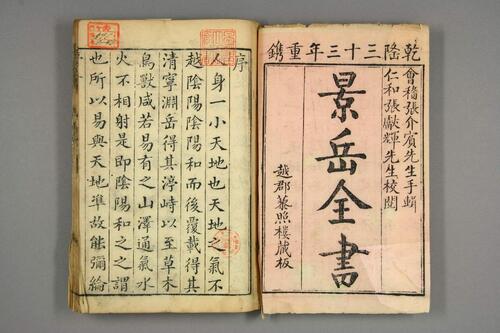 乾隆三十三年重鐫
會稽張介賓先生手輯
仁和張獻輝先生校閱
景岳全書
越郡藜照樓藏板
序
人身一小天地也天地之氣不
越陰陽陰陽和而後覆載得其
清寧淵岳得其渟峙以至草木
鳥獸咸若易有之山澤通氣水
火不相射是即陰陽和之之謂
也所以易與天地準故能彌綸